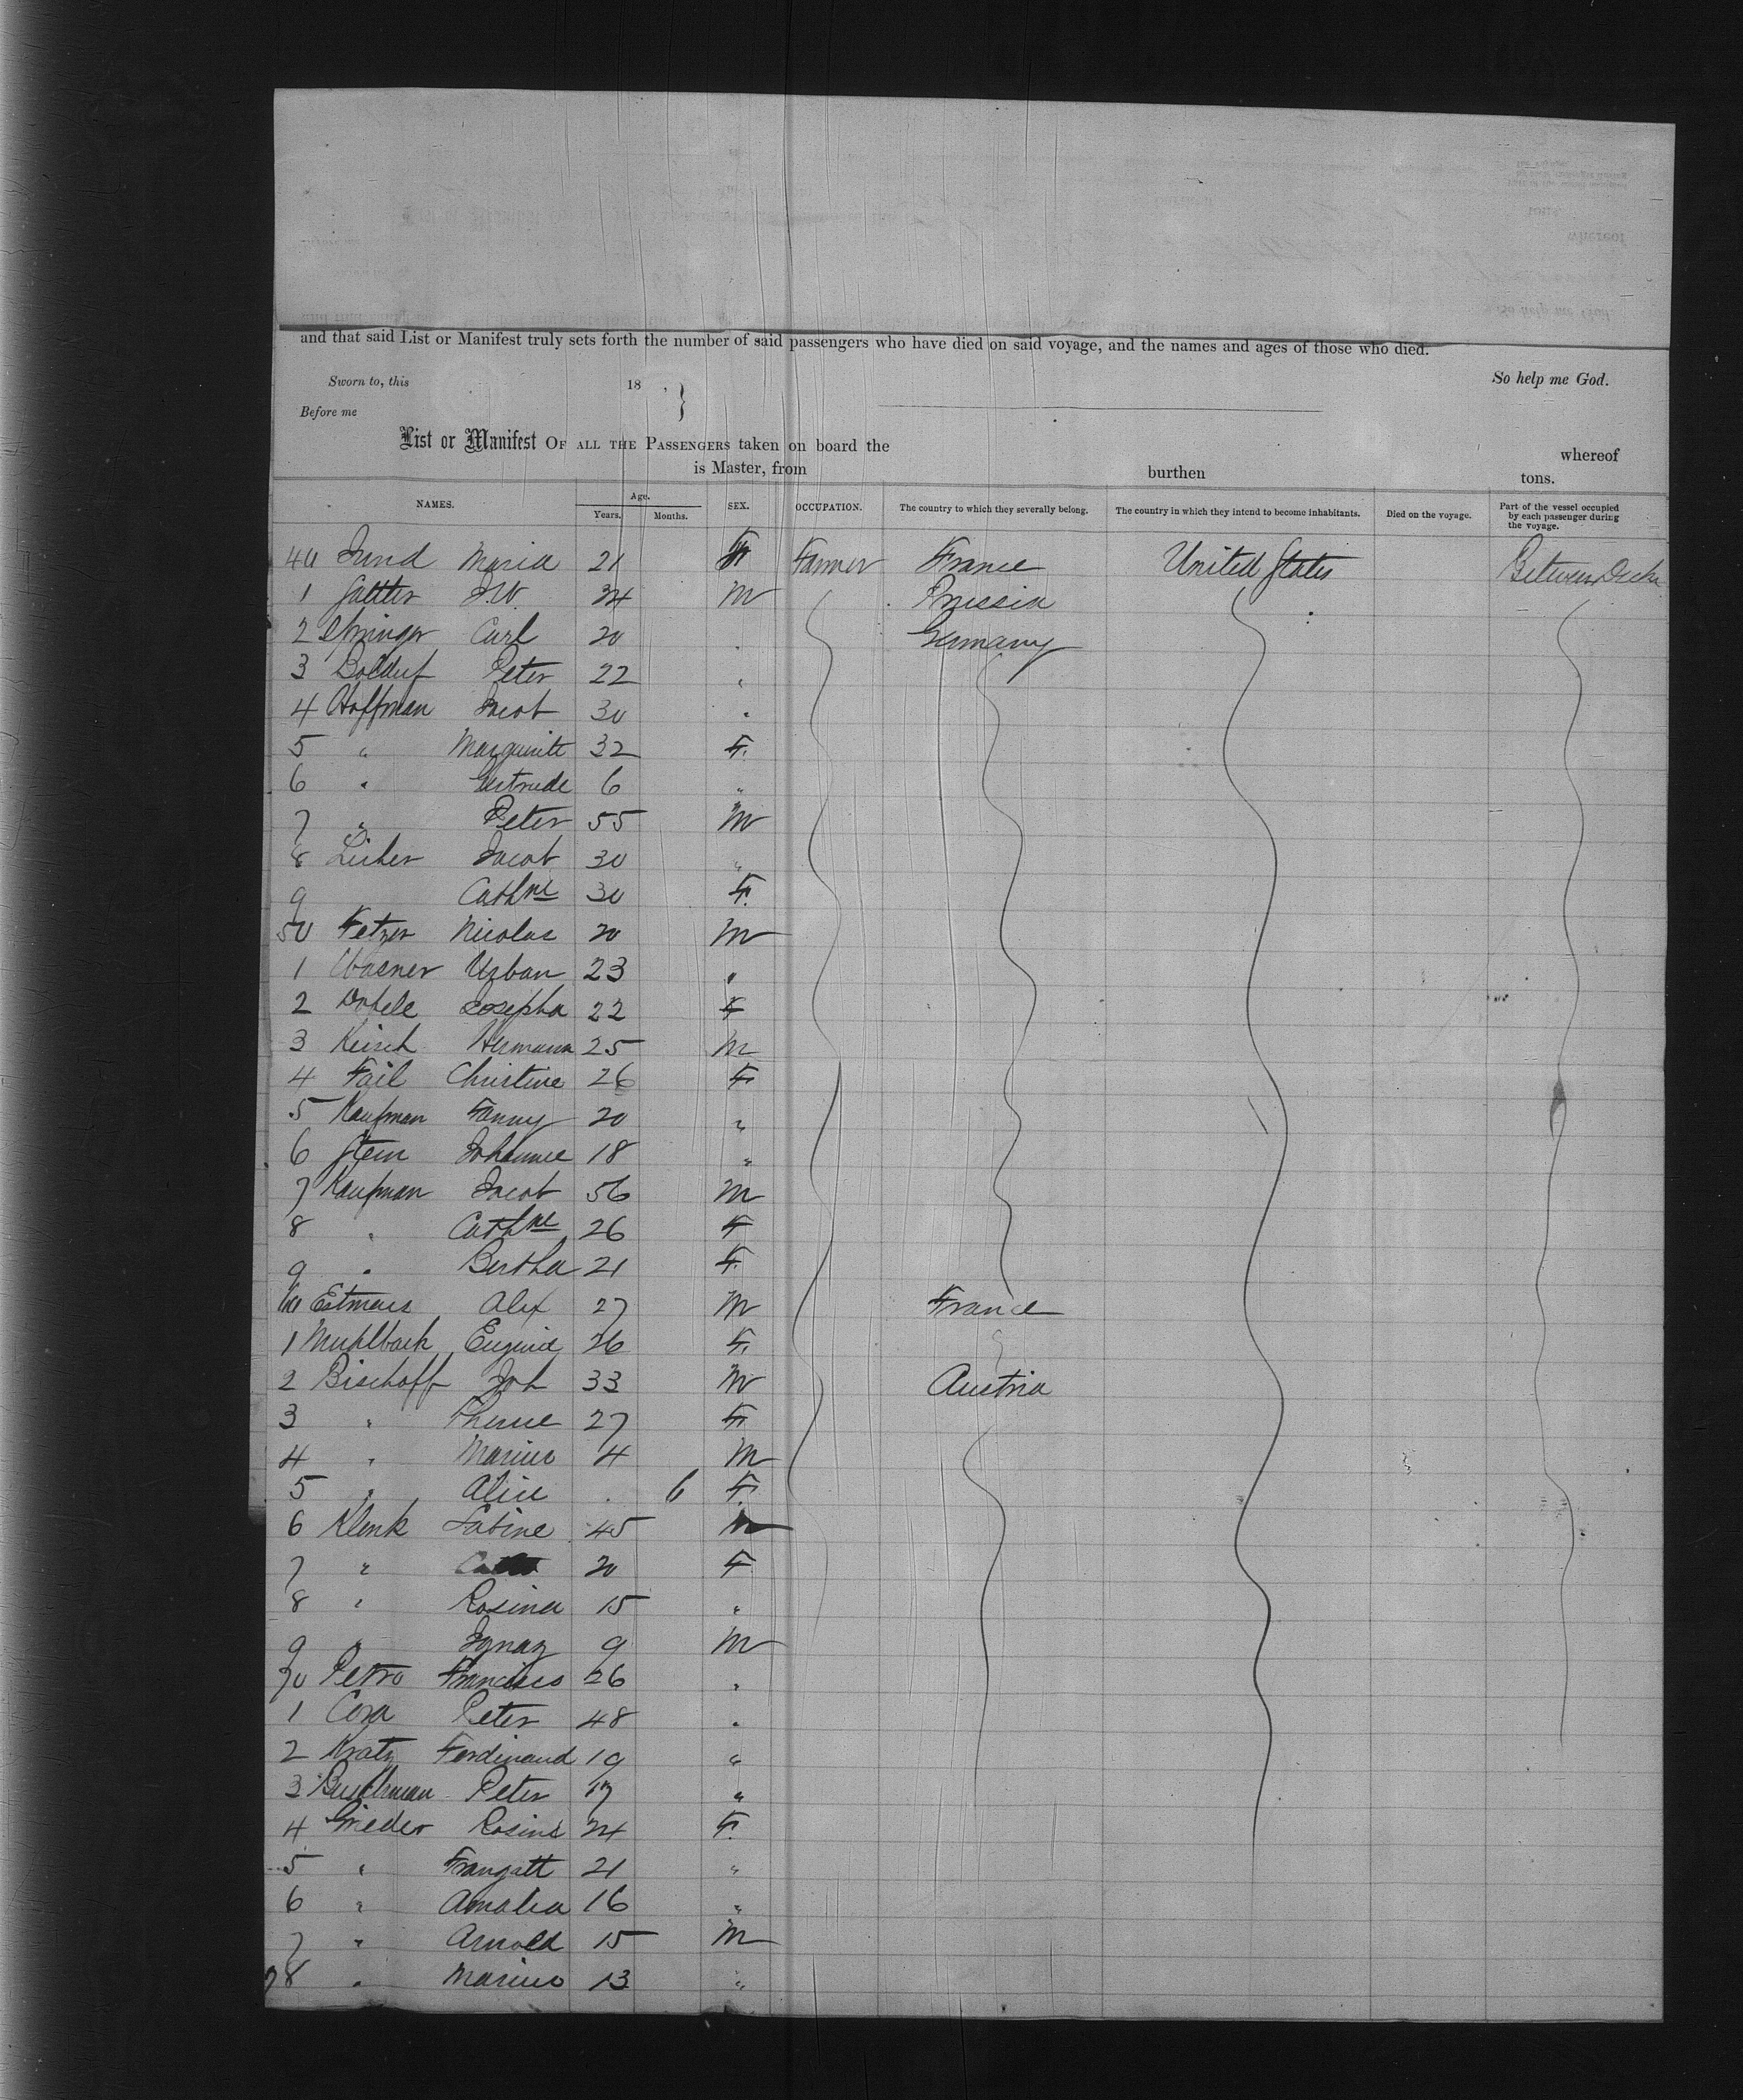 and that said List or Manifest truly sets forth the number of said passengers who have died on said voyage, and the names and ages of those who died.
Sworn to, this 18 , } So help me God.
Before me
List or Manifest OF ALL THE PASSENGERS taken on board the whereof
is Master, from burthen tons.
NAMES. Age. Years. Months. SEX. OCCUPATION. The country to which they severally belong. The country in which they intend to become inhabitants. Died on the voyage. Part of the vessel occupied by each passenger during the voyage.
40 Maria 21 F Farmer France United States Between Decks
1 J.W. 24 M Prussia
2 Springer Carl 20 . Germany
3 Peter 22 "
4 Hoffman Jacob 30 "
5 " Marguritt 32 F.
6 " Gertrude 6 "
7 " Peter 55 M
8 Jacob 30 "
9 Cathne 30 F.
50 Fetzer Nicolas 20 M
1 Wasner Urban 23 "
2 Josepha 22 F
3 Hermann 25 M
4 Fail Christine 26 F
5 Kaufman Fanny 20 "
6 Stein Johanne 18 "
7 Kaufman Jacob 56 M
8 " Cathne 26 F
9 " Bertha 21 F.
60 Alex 27 M France
1 Muhlbach Eugenie 26 F.
2 Bischoff Joh 33 M Austria
3 " 27 F
4 " Marius 4 M
5 " Alice . 6 F.
6 Klenk Sabine 45
7 " 20 F
8 " Rosina 15 "
9 " Ignaz 9 M
70 Petro Francisco 26 "
1 Peter 48 "
2 Kratz Ferdinand 19 "
3 Peter 17 "
4 Grieder Rosine 24 F.
5 " 21 "
6 " Amalia 16 "
7 " Arnold 15 M
78 " Marius 13 "